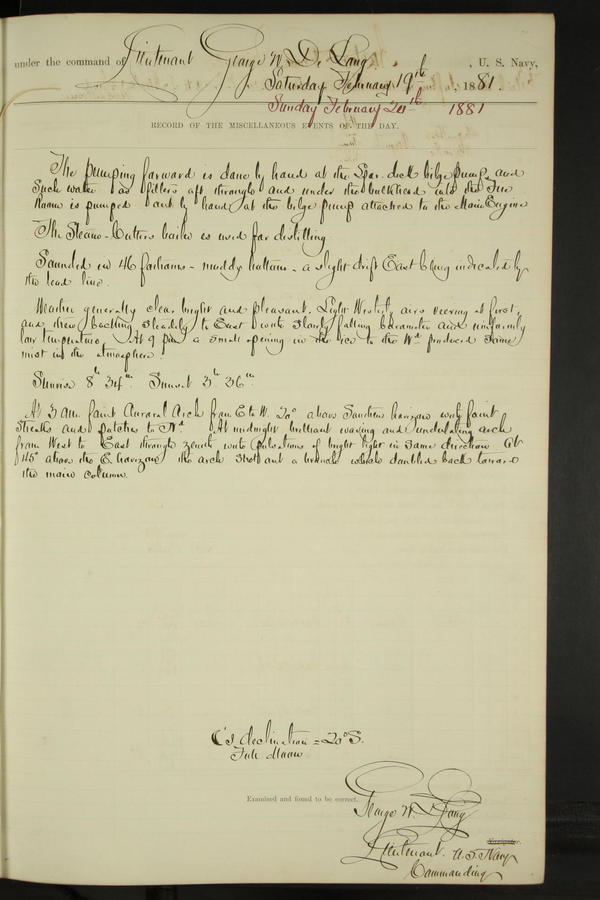 under the command of Lieutenant George W. De Long, U. S. Navy,
Saturday February 19th, 1881.
Sunday February 20th 1881
RECORD OF THE MISCELLANEOUS EVENTS OF THE DAY.
The pumping forward is done by hand at the Spar deck bilge pump, and
such water as filters aft through and under the bulkhead into the Fire
Room is pumped out by hand at the bilge pump attached to the Main Engine
The Steam-Cutters boiler is used for distilling
Sounded in 46 fathoms - muddy bottom - a slight drift East being indicated by
the lead line.
Weather generally clear, bright and pleasant. Light Westerly airs veering at first,
and then backing steadily to East with slowly falling barometer and uniformly
low temperature. At 9 pm a small opening in the ice to the Wd produced some
mist in the atmosphere.
Sunrise 8h 34m. Sunset 3h 36m.
At 3 AM faint Auroral Arch from E to W. 20° above Southern horizon with faint
streaks and patches to Nd. At midnight brilliant waving and undulating arch
from West to East through zenith with pulsations of bright light in same direction. At
45° above the E. horizon the arch shot out a branch which doubled back toward
the main column.
☾'s declination = 20° S.
Full Moon
Examined and found to be correct.
George W. De Long
Navigator.
Lieutenant. U.S. Navy
Commanding